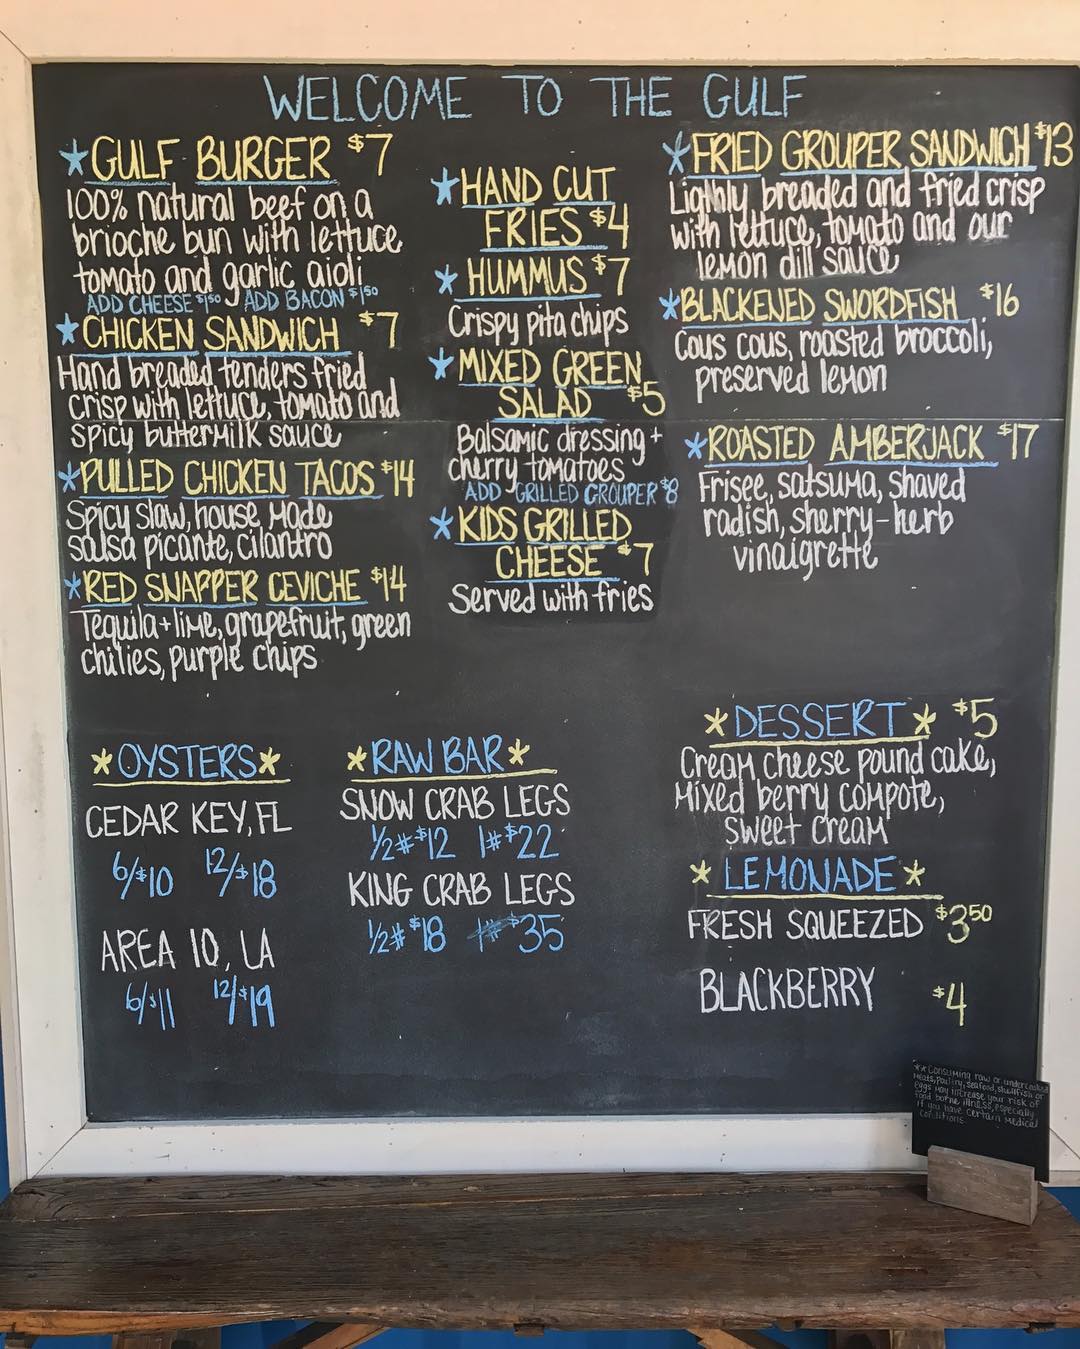 WELCOME TO THE GULF
*GULF BURGER $7
100% natural beef on a
brioche bun with lettuce
tomato and garlic aioli
ADD CHEESE $1.50 ADD BACON $1.50
*CHICKEN SANDWICH $7
Hand breaded tenders fried
crisp with lettuce, tomato and
spicy buttermilk sauce
*PULLED CHICKEN TACOS $14
Spicy slaw, house made
salsa picante, cilantro
*RED SNAPPER CEVICHE $14
Tequila+lime, grapefruit, green
chilies, purple chips
*HAND CUT
FRIES $4
*HUMMUS $7
Crispy pita chips
*MIXED GREEN
SALAD $5
Balsamic dressing +
cherry tomatoes
ADD GRILLED GROUPER $8
*KIDS GRILLED
CHEESE $7
Served with fries
*FRIED GROUPER SANDWICH $13
Lightly breaded and fried crisp
with lettuce, tomato and our
lemon dill sauce
*BLACKENED SWORDFISH $16
Cous cous, roasted broccoli,
preserved lemon
*ROASTED AMBERJACK $17
Frisee, satsuma, shaved
radish, sherry-herb
vinaigrette
*OYSTERS*
CEDAR KEY, FL
6/$10 12/$18
AREA 10, LA
6/$11 12/$19
*RAW BAR*
SNOW CRAB LEGS
1/2# $12 1# $22
KING CRAB LEGS
1/2# $18 1# $35
*DESSERT* $5
Cream cheese pound cake,
Mixed berry compote,
sweet cream
*LEMONADE*
FRESH SQUEEZED $3.50
BLACKBERRY $4
**Consuming raw or undercooked
meats, poultry, seafood, shellfish or
eggs may increase your risk of
food borne illness, especially
if you have certain medical
conditions.